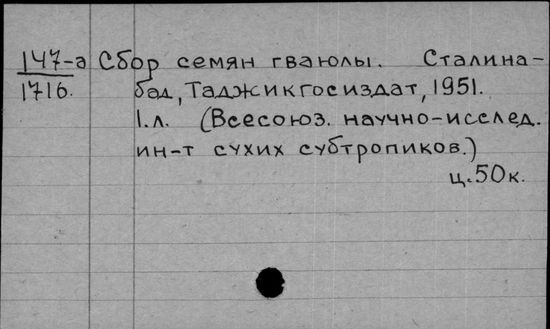 147-а Сбор семян гваюлы. Сталина-
1716. бад, Таджикгосиздат, 1951.
1.л. (Всесоюз. научно-исслед.
ин-т сухих субтропиков.)
ц.50к.